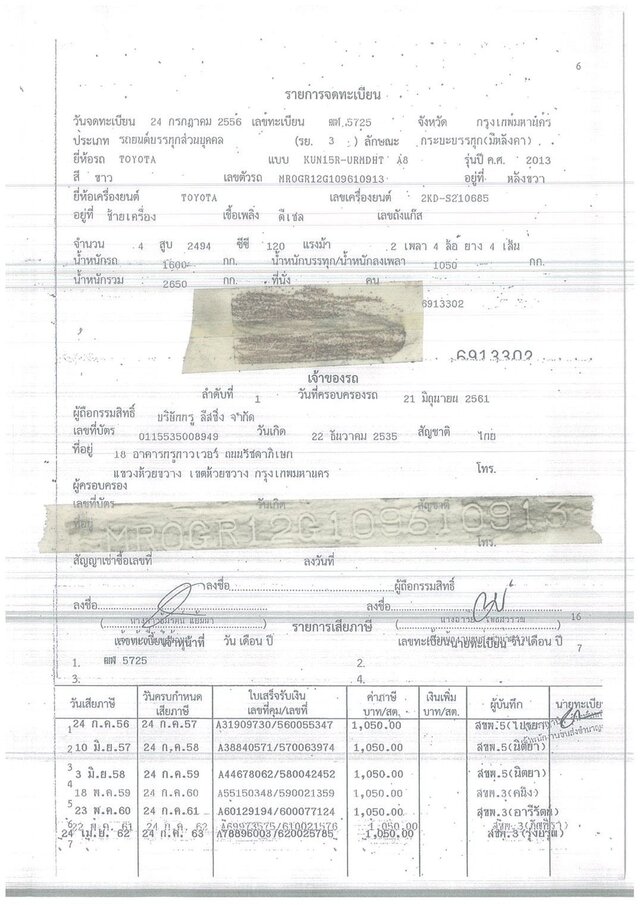 6
รายการจดทะเบียน
วันจดทะเบียน 24 กรกฎาคม 2556 เลขทะเบียน ฒฬ 5725 จังหวัด กรุงเทพมหานคร
ประเภท รถยนต์บรรทุกส่วนบุคคล (รย. 3 ) ลักษณะ กระบะบรรทุก(มีหลังคา)
ยี่ห้อรถ TOYOTA แบบ KUN15R-URMDHT รุ่นปี ค.ศ. 2013
สี ขาว เลขตัวรถ MR0GR12G109610913 อยู่ที่ หลังขวา
ยี่ห้อเครื่องยนต์ TOYOTA เลขเครื่องยนต์ 2KD-SZ10685
อยู่ที่ ซ้ายเครื่อง เชื้อเพลิง ดีเซล เลขถังแก๊ส
จำนวน 4 สูบ 2494 ซีซี 120 แรงม้า 2 เพลา 4 ล้อ ยาง 4 เส้น
น้ำหนักรถ 1600 กก. น้ำหนักบรรทุก/น้ำหนักลงเพลา 1050 กก.
น้ำหนักรวม 2650 กก. ที่นั่ง คน
6913302
6913302
เจ้าของรถ
ลำดับที่ 1 วันที่ครอบครองรถ 21 มิถุนายน 2561
ผู้ถือกรรมสิทธิ์ บริษัทกรู ลีสซิ่ง จำกัด
เลขที่บัตร 0115535008949 วันเกิด 22 ธันวาคม 2535 สัญชาติ ไทย
ที่อยู่ 18 อาคารกรูทาวเวอร์ ถนนรัชดาภิเษก
แขวงห้วยขวาง เขตห้วยขวาง กรุงเทพมหานคร โทร.
ผู้ครอบครอง
เลขที่บัตร วันเกิด สัญชาติ
ที่อยู่ MR0GR12G109610913
โทร.
สัญญาเช่าซื้อเลขที่ ลงวันที่
ลงชื่อ ผู้ถือกรรมสิทธิ์
ลงชื่อ ลงชื่อ
16
รายการเสียภาษี
เจ้าหน้าที่ วัน เดือน ปี เลขทะเบียน นายทะเบียน วัน เดือน ปี 7
1. ฒฬ 5725 2.
3. 4.
วันเสียภาษี วันครบกำหนดเสียภาษี ใบเสร็จรับเงิน เลขที่คุม/เลขที่ ค่าภาษี บาท/สต. เงินเพิ่ม บาท/สต. ผู้บันทึก นายทะเบียน
1 24 ก.ค.56 24 ก.ค.57 A31909730/560055347 1,050.00 สขพ.5
2 10 มิ.ย.57 24 ก.ค.58 A38840571/570063974 1,050.00 สขพ.5(นิตยา)
3 3 มิ.ย.58 24 ก.ค.59 A44678062/580042452 1,050.00 สขพ.5(นิตยา)
4 18 พ.ค.59 24 ก.ค.60 A55150348/590021359 1,050.00 สขพ.3(คนึง)
5 23 พ.ค.60 24 ก.ค.61 A60129194/600077124 1,050.00 สขพ.3(อารีรัตน์)
6 22 พ.ค. 61 24 ก.ค. 62 A69973575/610021576 1,050.00 สขพ.3
7 24 เม.ย. 62 24 ก.ค. 63 A78896003/620025785 1,050.00 สขพ.3(รุ่งอรุณ)